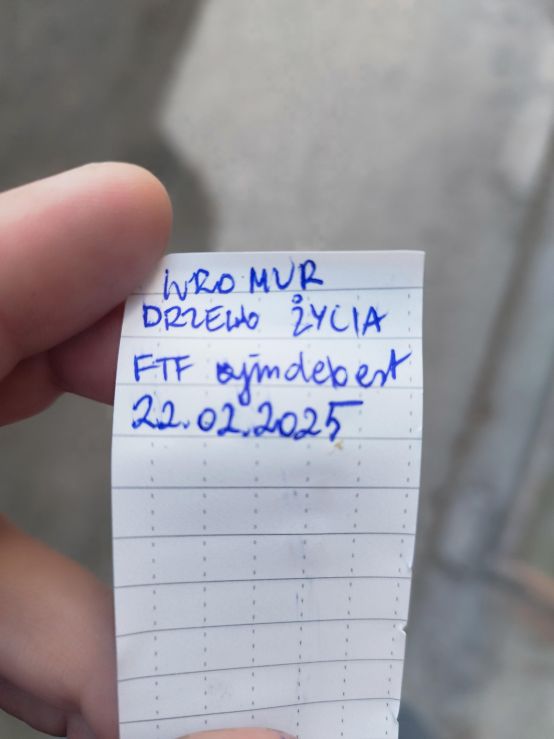 WRO MUR
DRZEWO ŻYCIA
FTF ajmdebest
22.02.2025